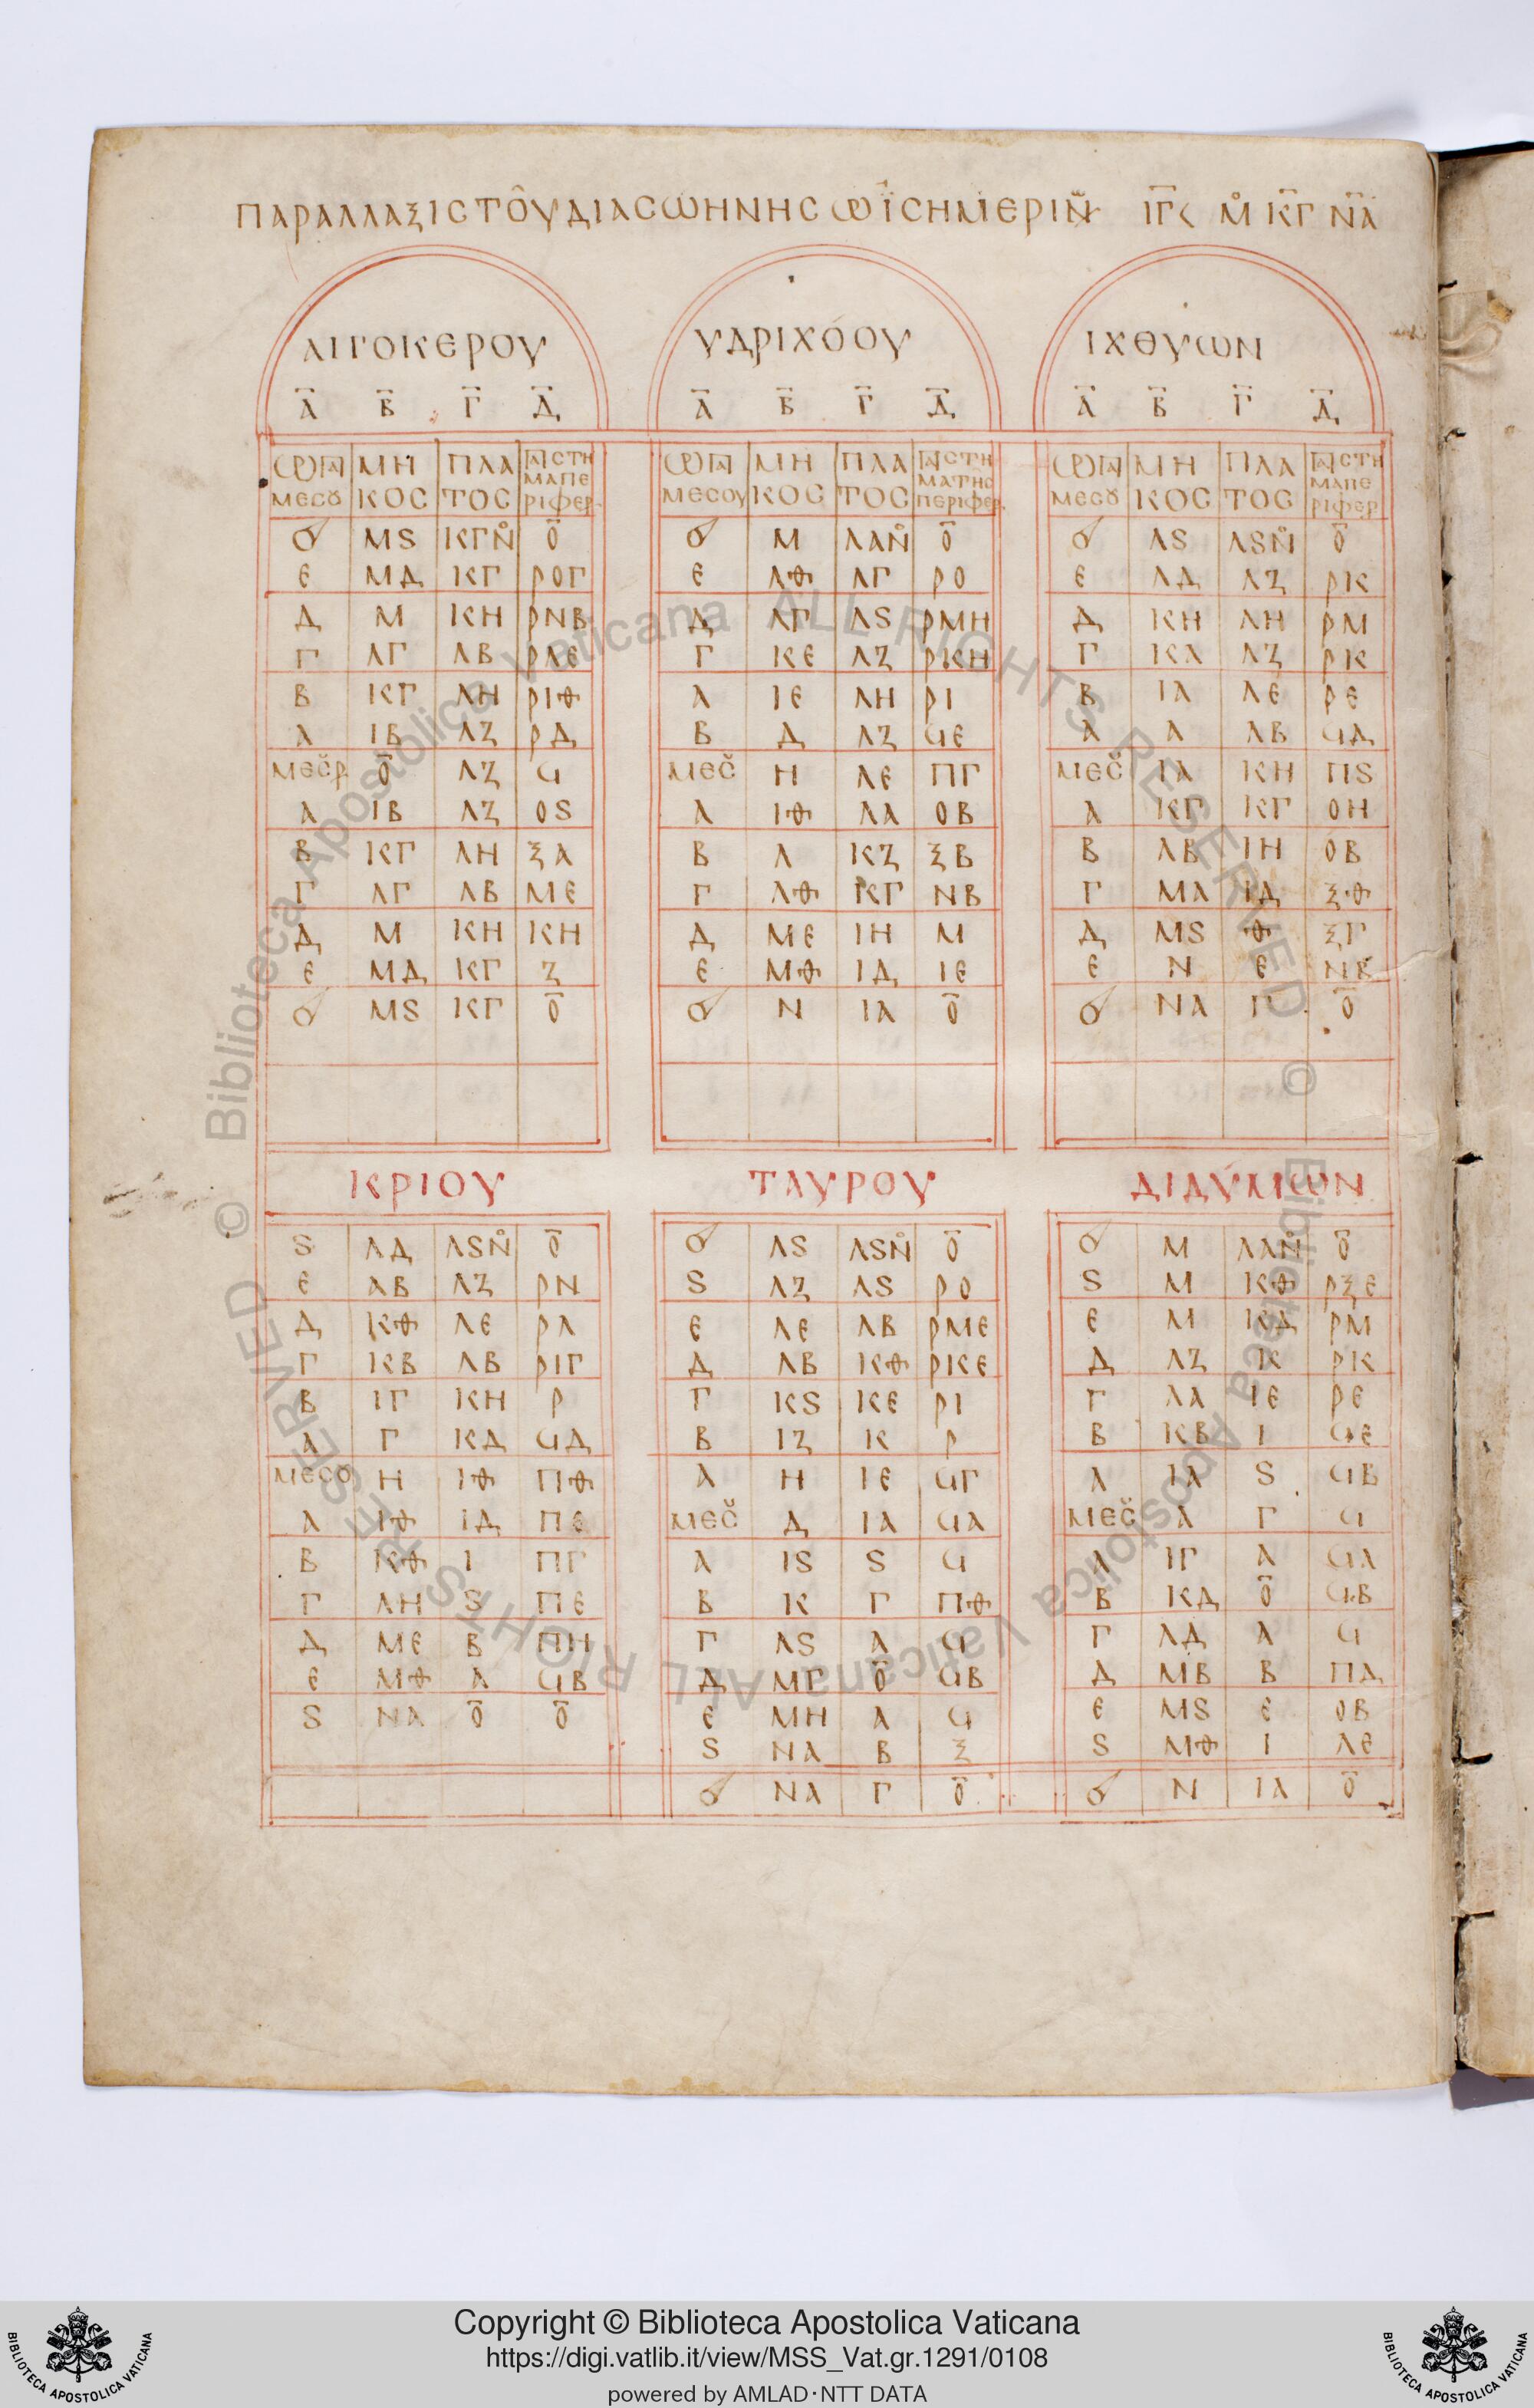 ΠΑΡΑΛΛΑΞΙΣ ΤΟΥ ΔΙΑ ΣΟΗΝΗΣ ΩΡ ΙΣΗΜΕΡΙΝ ΙΓ< Μ ΚΓ ΝΑ
ΑΙΓΟΚΕΡΟΥ ΥΔΡΙΧΟΟΥ ΙΧΘΥΩΝ
Α Β Γ Δ Α Β Γ Δ Α Β Γ Δ
ΜΗ ΠΛΑ ΣΤΗ ΜΗ ΠΛΑ ΣΤΗ ΜΗ ΠΛΑ ΣΤΗ
ΜΑΠΕ ΜΑΤΗΣ ΜΑΠΕ
ΜΕΣΟΥ ΚΟΣ ΤΟΣ ΡΙΦΕΡ ΜΕΣΟΥ ΚΟΣ ΤΟΣ ΠΕΡΙΦΕΡ ΜΕΣΟΥ ΚΟΣ ΤΟΣ ΡΙΦΕΡ
ΜϚ ΚΓΝ Ο Μ ΛΑΝ Ο ΛϚ ΛϚΝ Ο
Ε ΜΔ ΚΓ ΡΟΓ Ε ΛΘ ΛΓ ΡΟ Ε ΛΔ ΛΖ ΡΚ
Δ Μ ΚΗ ΡΝΒ Δ ΛΓ ΛϚ ΡΜΗ Δ ΚΗ ΛΗ ΡΜ
Γ ΛΓ ΛΒ ΡΛΕ Γ ΚΕ ΛΖ ΡΚΗ Γ ΚΑ ΛΖ ΡΚ
Β ΚΓ ΛΗ ΡΙΘ Α ΙΕ ΛΗ ΡΙ Β ΙΑ ΛΕ ΡΕ
Α ΙΒ ΛΖ ΡΔ Β Δ ΛΖ ϞΕ Α Α ΛΒ ϞΔ
ΜΕΣΡ Ο ΛΖ Ϟ ΜΕΣ Η ΛΕ ΠΓ ΜΕΣ ΙΑ ΚΗ ΠϚ
Α ΙΒ ΛΖ ΟϚ Α ΙΘ ΛΑ ΟΒ Α ΚΓ ΚΓ ΟΗ
Β ΚΓ ΛΗ ΞΑ Β Λ ΚΖ ΞΒ Β ΛΒ ΙΗ ΟΒ
Γ ΛΓ ΛΒ ΜΕ Γ ΛΘ ΚΓ ΝΒ Γ ΜΑ ΙΔ ΞΘ
Δ Μ ΚΗ ΚΗ Δ ΜΕ ΙΗ Μ Δ ΜϚ Θ ΞΓ
Ε ΜΔ ΚΓ Ζ Ε ΜΘ ΙΔ ΙΕ Ε Ν Ε ΝΒ
ΜϚ ΚΓ Ο Ν ΙΑ Ο ΝΑ Γ Ο
ΚΡΙΟΥ ΤΑΥΡΟΥ ΔΙΔΥΜΩΝ
Ϛ ΛΔ ΛϚΝ Ο ΛϚ ΛϚΝ Ο Μ ΛΑΝ Ο
Ε ΛΒ ΛΖ ΡΝ Ϛ ΛΖ ΛϚ ΡΟ Ϛ Μ ΚΘ ΡΞΕ
Δ ΚΘ ΛΕ ΡΛ Ε ΛΕ ΛΒ ΡΜΕ Ε Μ ΚΔ ΡΜ
Γ ΚΒ ΛΒ ΡΙΓ Δ ΛΒ ΚΘ ΡΚΕ Δ ΛΖ Κ ΡΚ
Β ΙΓ ΚΗ Ρ Γ ΚϚ ΚΕ ΡΙ Γ ΛΑ ΙΕ ΡΕ
Α Γ ΚΔ ϞΔ Β ΙΖ Κ Ρ Β ΚΒ Ι ϞΕ
ΜΕΣΟ Η ΙΘ ΠΘ Α Η ΙΕ ϞΓ Α ΙΑ Ϛ ϞΒ
Α ΙΘ ΙΔ ΠΕ ΜΕΣ Δ ΙΑ ϞΑ ΜΕΣ Α Γ Ϟ
Β ΚΘ Ι ΠΓ Α ΙϚ Ϛ Ϟ Α ΙΓ Α ϞΑ
Γ ΛΗ Ϛ ΠΕ Β Κ Γ ΠΘ Β ΚΔ Ο ϞΒ
Δ ΜΕ Β ΠΗ Γ ΛϚ Α Ϟ Γ ΛΔ Α Ϟ
Ε ΜΘ Α ϞΒ Δ ΜΓ Ο ϞΒ Δ ΜΒ Β ΠΔ
Ϛ ΝΑ Ο Ο Ε ΜΗ Α Ϟ Ε ΜϚ Ε ΟΒ
Ϛ ΝΑ Β Ξ Ϛ ΜΘ Ι ΛΕ
ΝΑ Γ Ο Ν ΙΑ Ο
© Biblioteca Apostolica Vaticana ALL RIGHTS RESERVED © Biblioteca Apostolica Vaticana ALL RIGHTS RESERVED
Copyright © Biblioteca Apostolica Vaticana
https://digi.vatlib.it/view/MSS_Vat.gr.1291/0108
powered by AMLAD·NTT DATA
BIBLIOTECA APOSTOLICA VATICANA
BIBLIOTECA APOSTOLICA VATICANA